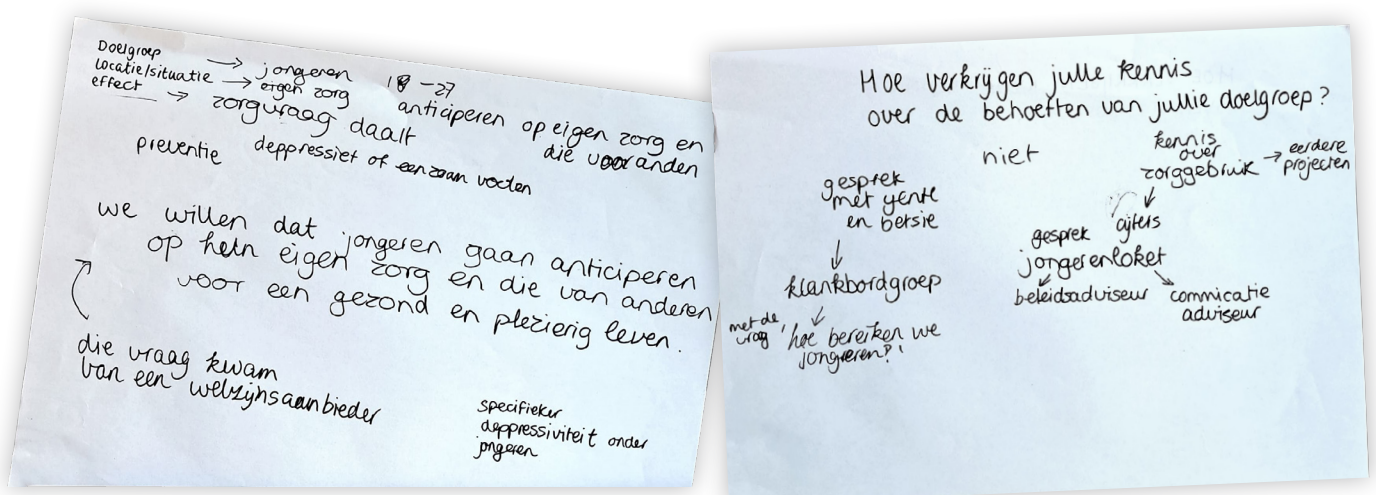 Doelgroep → jongeren 18 - 27
locatie/situatie → eigen zorg
effect → zorgvraag daalt
anticiperen op eigen zorg en
die voor anderen
preventie
deppressief of eenzaam voelen
we willen dat jongeren gaan anticiperen
op hun eigen zorg en die van anderen
voor een gezond en plezierig leven.
die vraag kwam
van een welzijnsaanbieder
specifieker
deppressiviteit onder
jongeren
Hoe verkrijgen jullie kennis
over de behoeften van jullie doelgroep?
niet
gesprek
met
en
↓
klankbordgroep
↓
met de
vraag
'hoe bereiken we
jongeren?'
kennis
over
zorggebruik → eerdere
projecten
↓
cijfers
gesprek
jongerenloket
beleidsadviseur
commicatie
adviseur